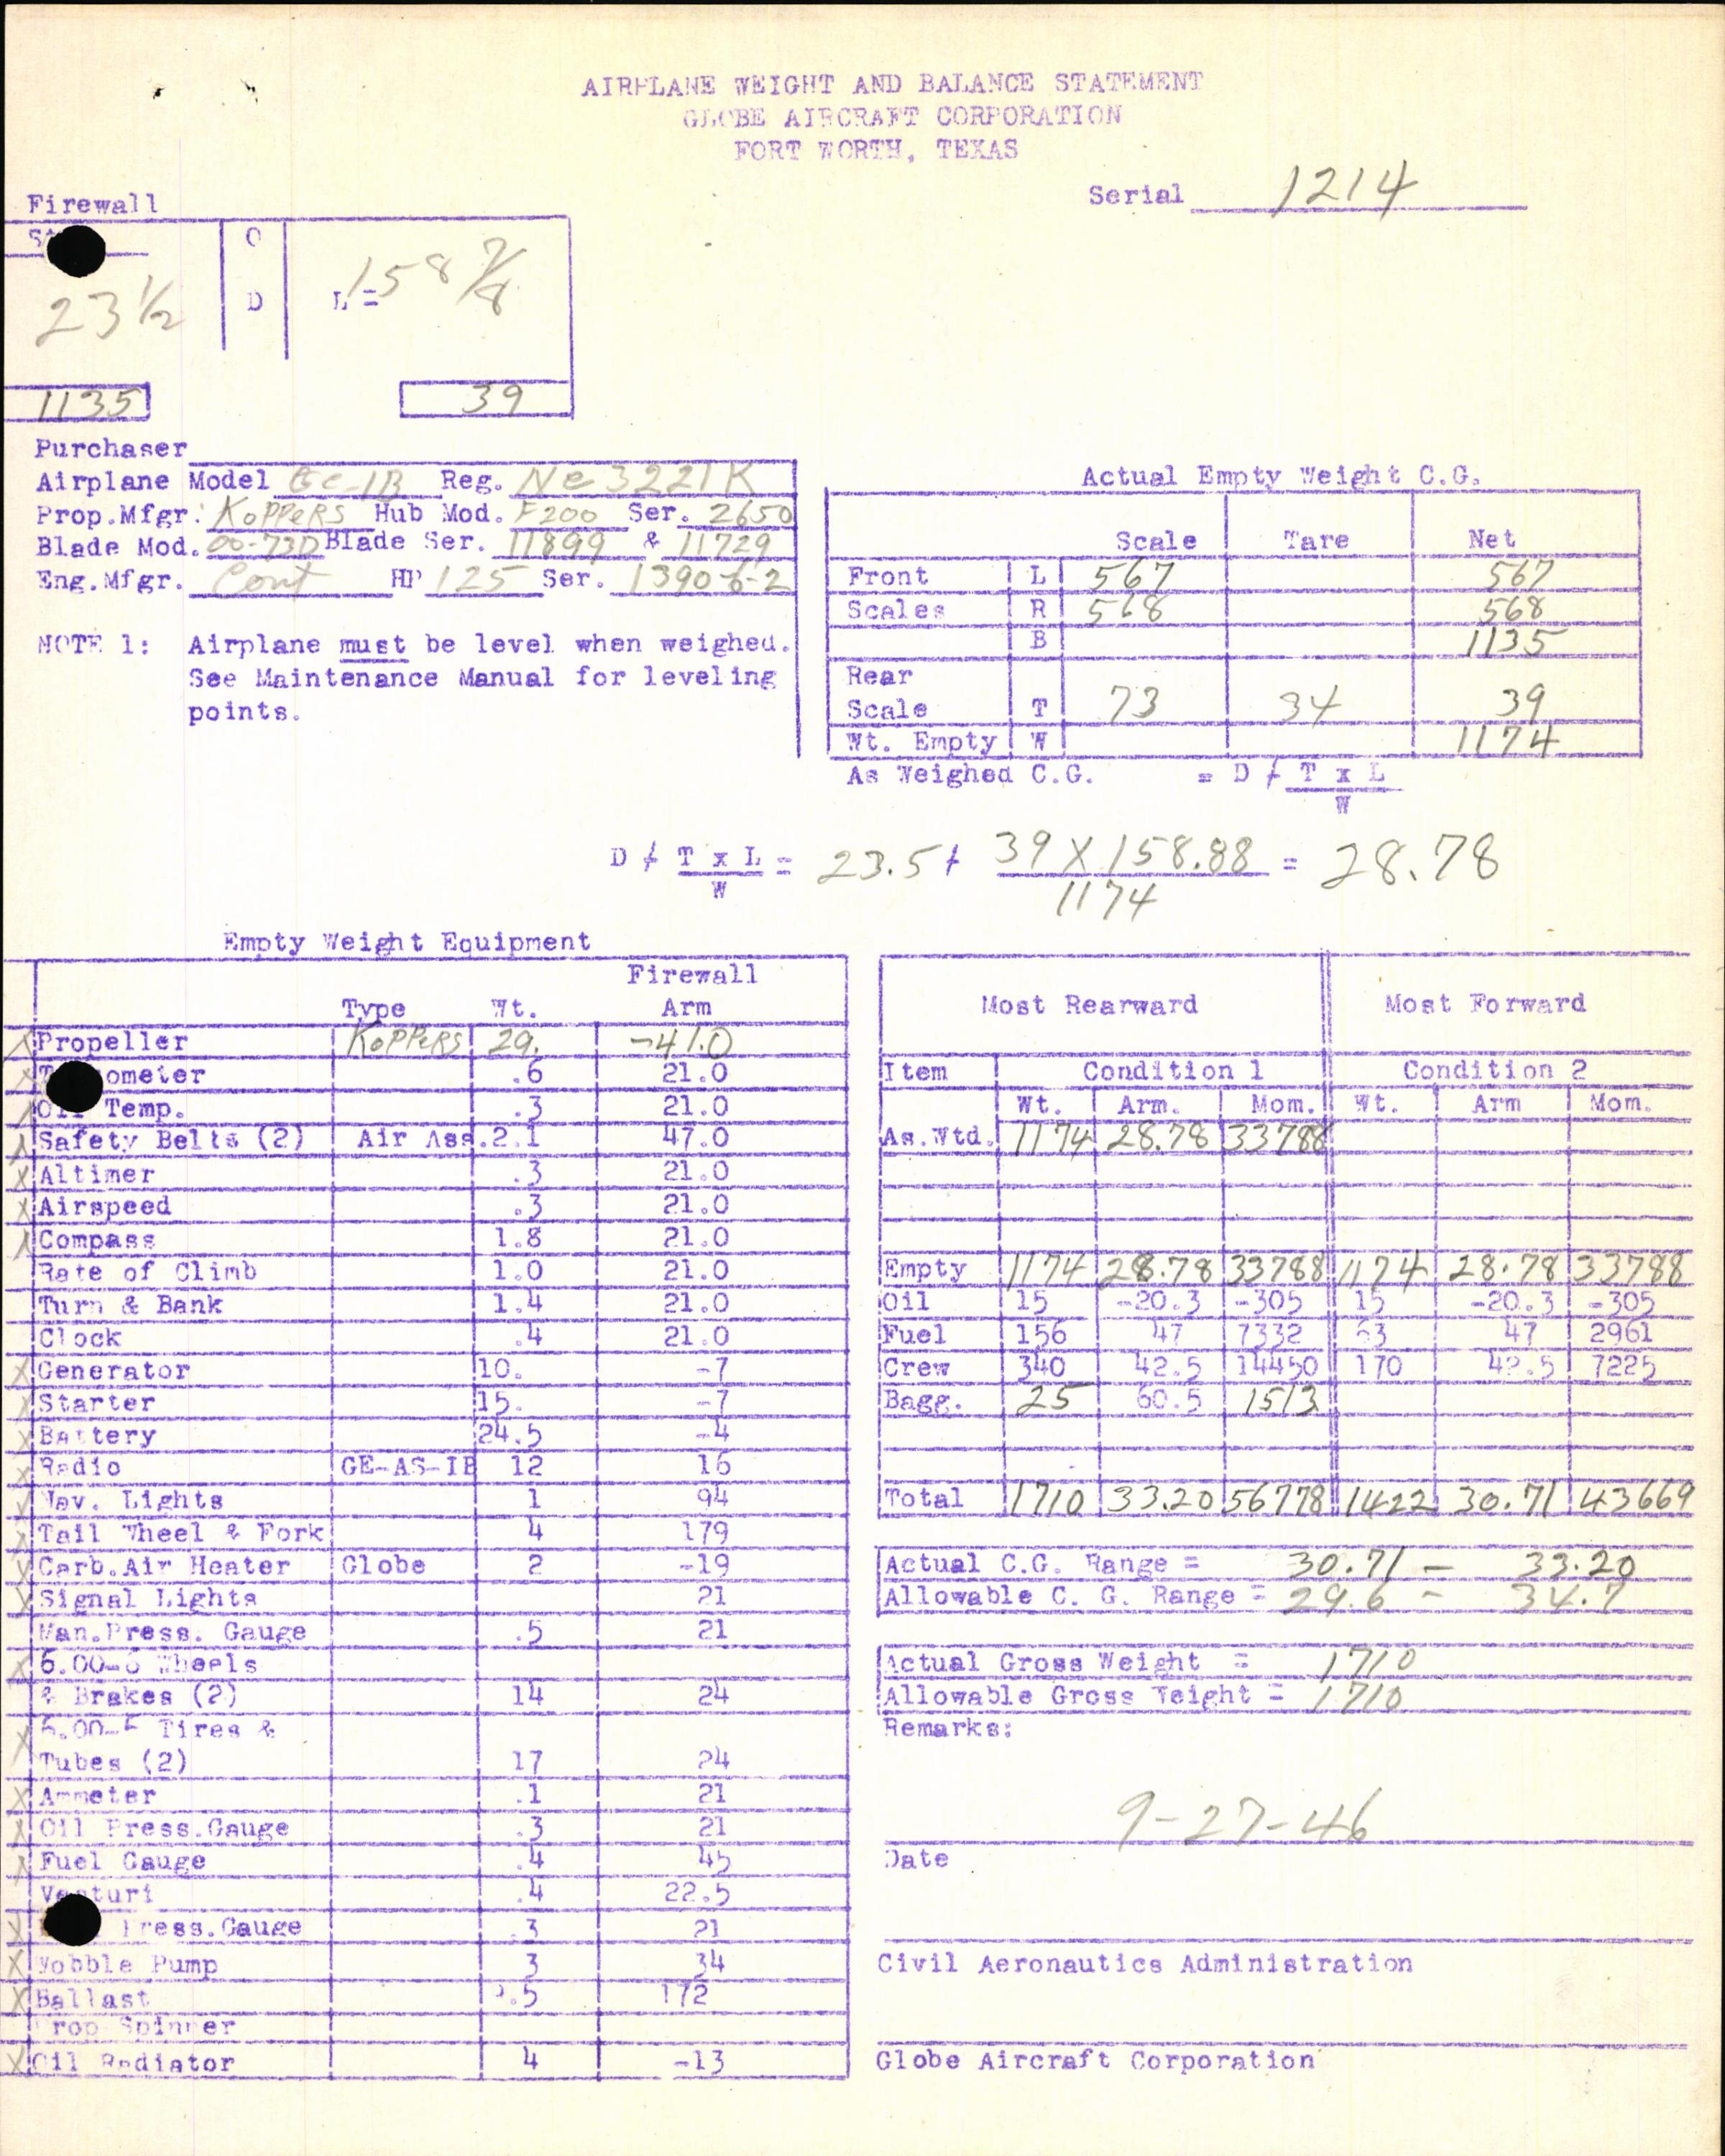 AIRPLANE WEIGHT AND BALANCE STATEMENT
GLOBE AIRCRAFT CORPORATION
FORT WORTH, TEXAS
Serial 1214
Firewall
C
23 1/2 D L = 158 7/8
1135 39
Purchaser
Airplane Model GC-1B Reg. Nc 3221K
Prop.Mfgr. KOPPERS Hub Mod. F200 Ser. 2650
Blade Mod. 00-73D Blade Ser. 11899 & 11729
Eng.Mfgr. Cont HP 125 Ser. 1390-6-2
NOTE 1: Airplane must be level when weighed.
See Maintenance Manual for leveling
points.
Actual Empty Weight C.G.
Scale Tare Net
Front L 567 567
Scales R 568 568
B 1135
Rear
Scale T 73 34 39
Wt. Empty W 1174
As Weighed C.G. = D + T x L
W
D + T x L = 23.5 + 39 X 158.88 = 28.78
W 1174
Empty Weight Equipment
Firewall
Type Wt. Arm
X Propeller KOPPERS 29. -41.0
X ometer .6 21.0
X Oil Temp. .3 21.0
X Safety Belts (2) Air Ass. 2.1 47.0
X Altimer .3 21.0
X Airspeed .3 21.0
X Compass 1.8 21.0
Rate of Climb 1.0 21.0
Turn & Bank 1.4 21.0
Clock .4 21.0
X Generator 10. -7
X Starter 15. -7
X Battery 24.5 -4
X Radio GE-AS-1B 12 16
X Nav. Lights 1 94
X Tail Wheel & Fork 4 179
X Carb.Air Heater Globe 2 -19
X Signal Lights 21
Man.Press. Gauge .5 21
X 6.00-6 Wheels
& Brakes (2) 14 24
X 6.00-6 Tires &
Tubes (2) 17 24
X Ammeter .1 21
X Oil Press.Gauge .3 21
X Fuel Gauge .4 45
Venturi .4 22.5
X Press.Gauge .3 21
X Wobble Pump 3 34
X Ballast .5 172
Prop Spinner
X Oil Radiator 4 -13
Most Rearward Most Forward
Item Condition 1 Condition 2
Wt. Arm. Mom. Wt. Arm Mom.
As.Wtd. 1174 28.78 33788
Empty 1174 28.78 33788 1174 28.78 33788
Oil 15 -20.3 -305 15 -20.3 -305
Fuel 156 47 7332 63 47 2961
Crew 340 42.5 14450 170 42.5 7225
Bagg. 25 60.5 1513
Total 1710 33.20 56778 1422 30.71 43669
Actual C.G. Range = 30.71 - 33.20
Allowable C. G. Range = 29.6 - 34.7
Actual Gross Weight = 1710
Allowable Gross Weight = 1710
Remarks:
9-27-46
Date
Civil Aeronautics Administration
Globe Aircraft Corporation